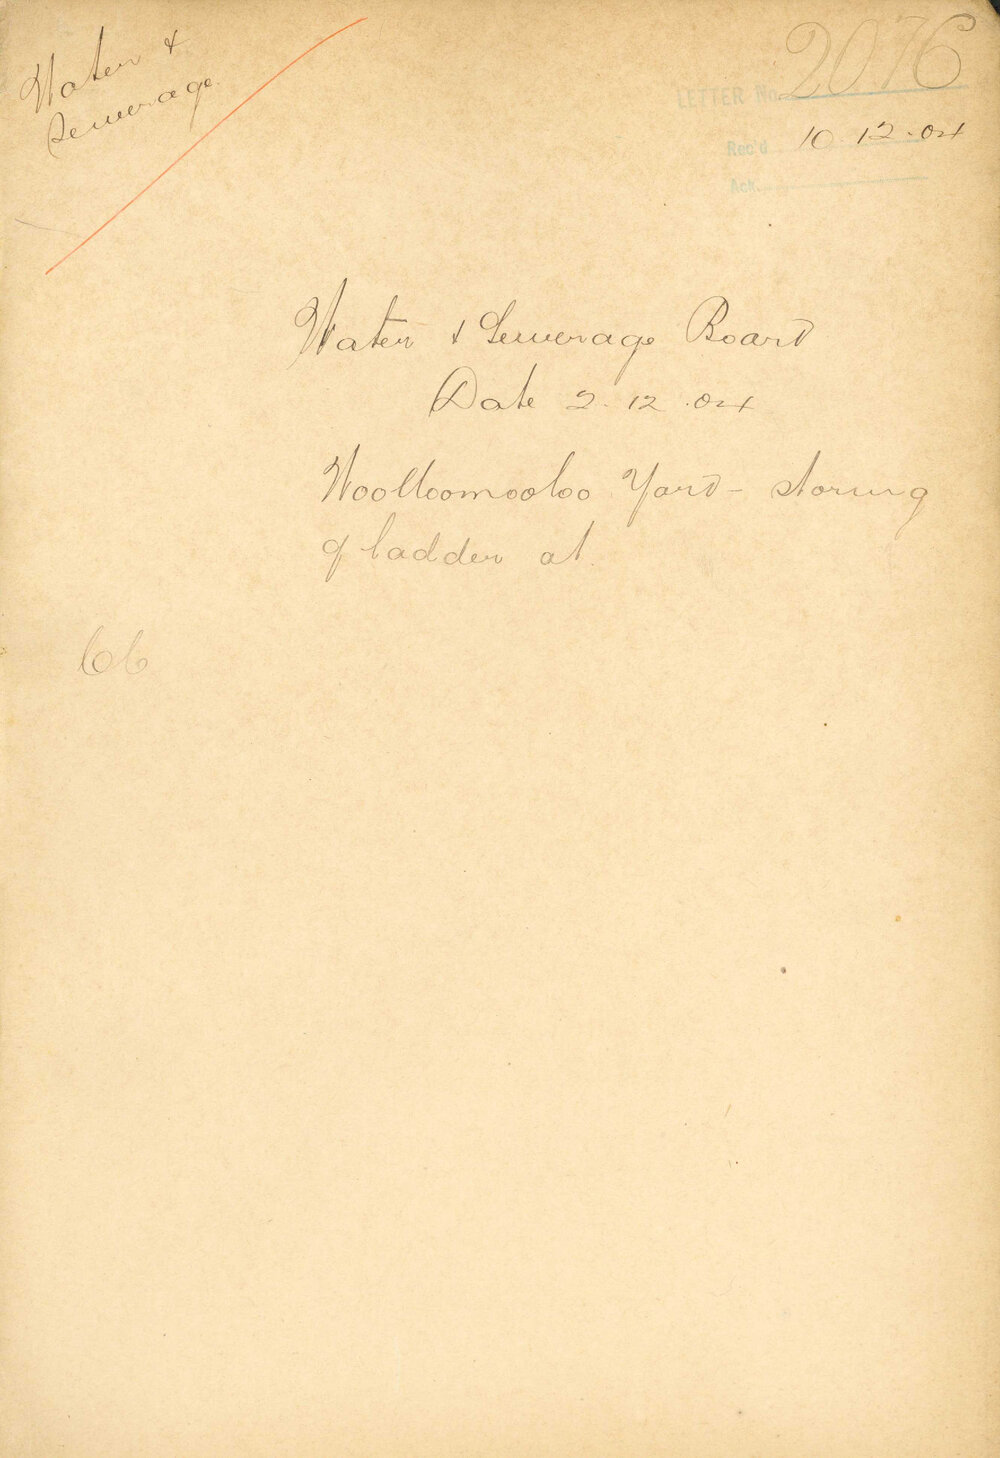 Water &
Sewerage
LETTER No. 2076
Rec'd 10.12.04
Ack.
Water & Sewerage Board
Date 2.12.04
Woolloomooloo Yard - storing
of ladder at.